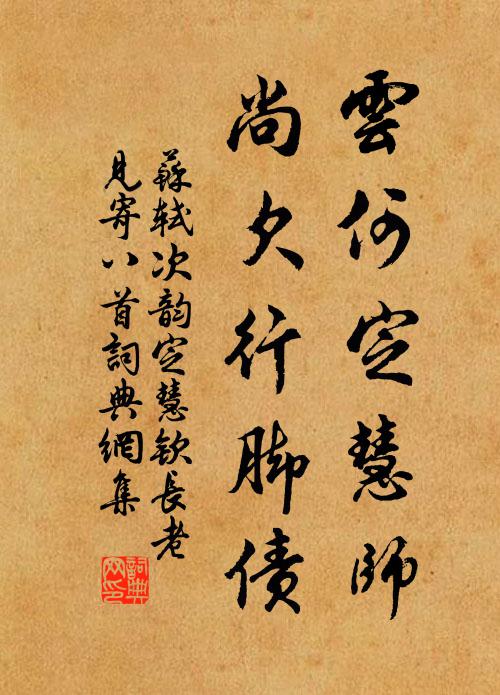 雲何定慧師
尚欠行脚債
蘇軾次韵定慧欽長老
見寄八首詞典網集
詞典网印